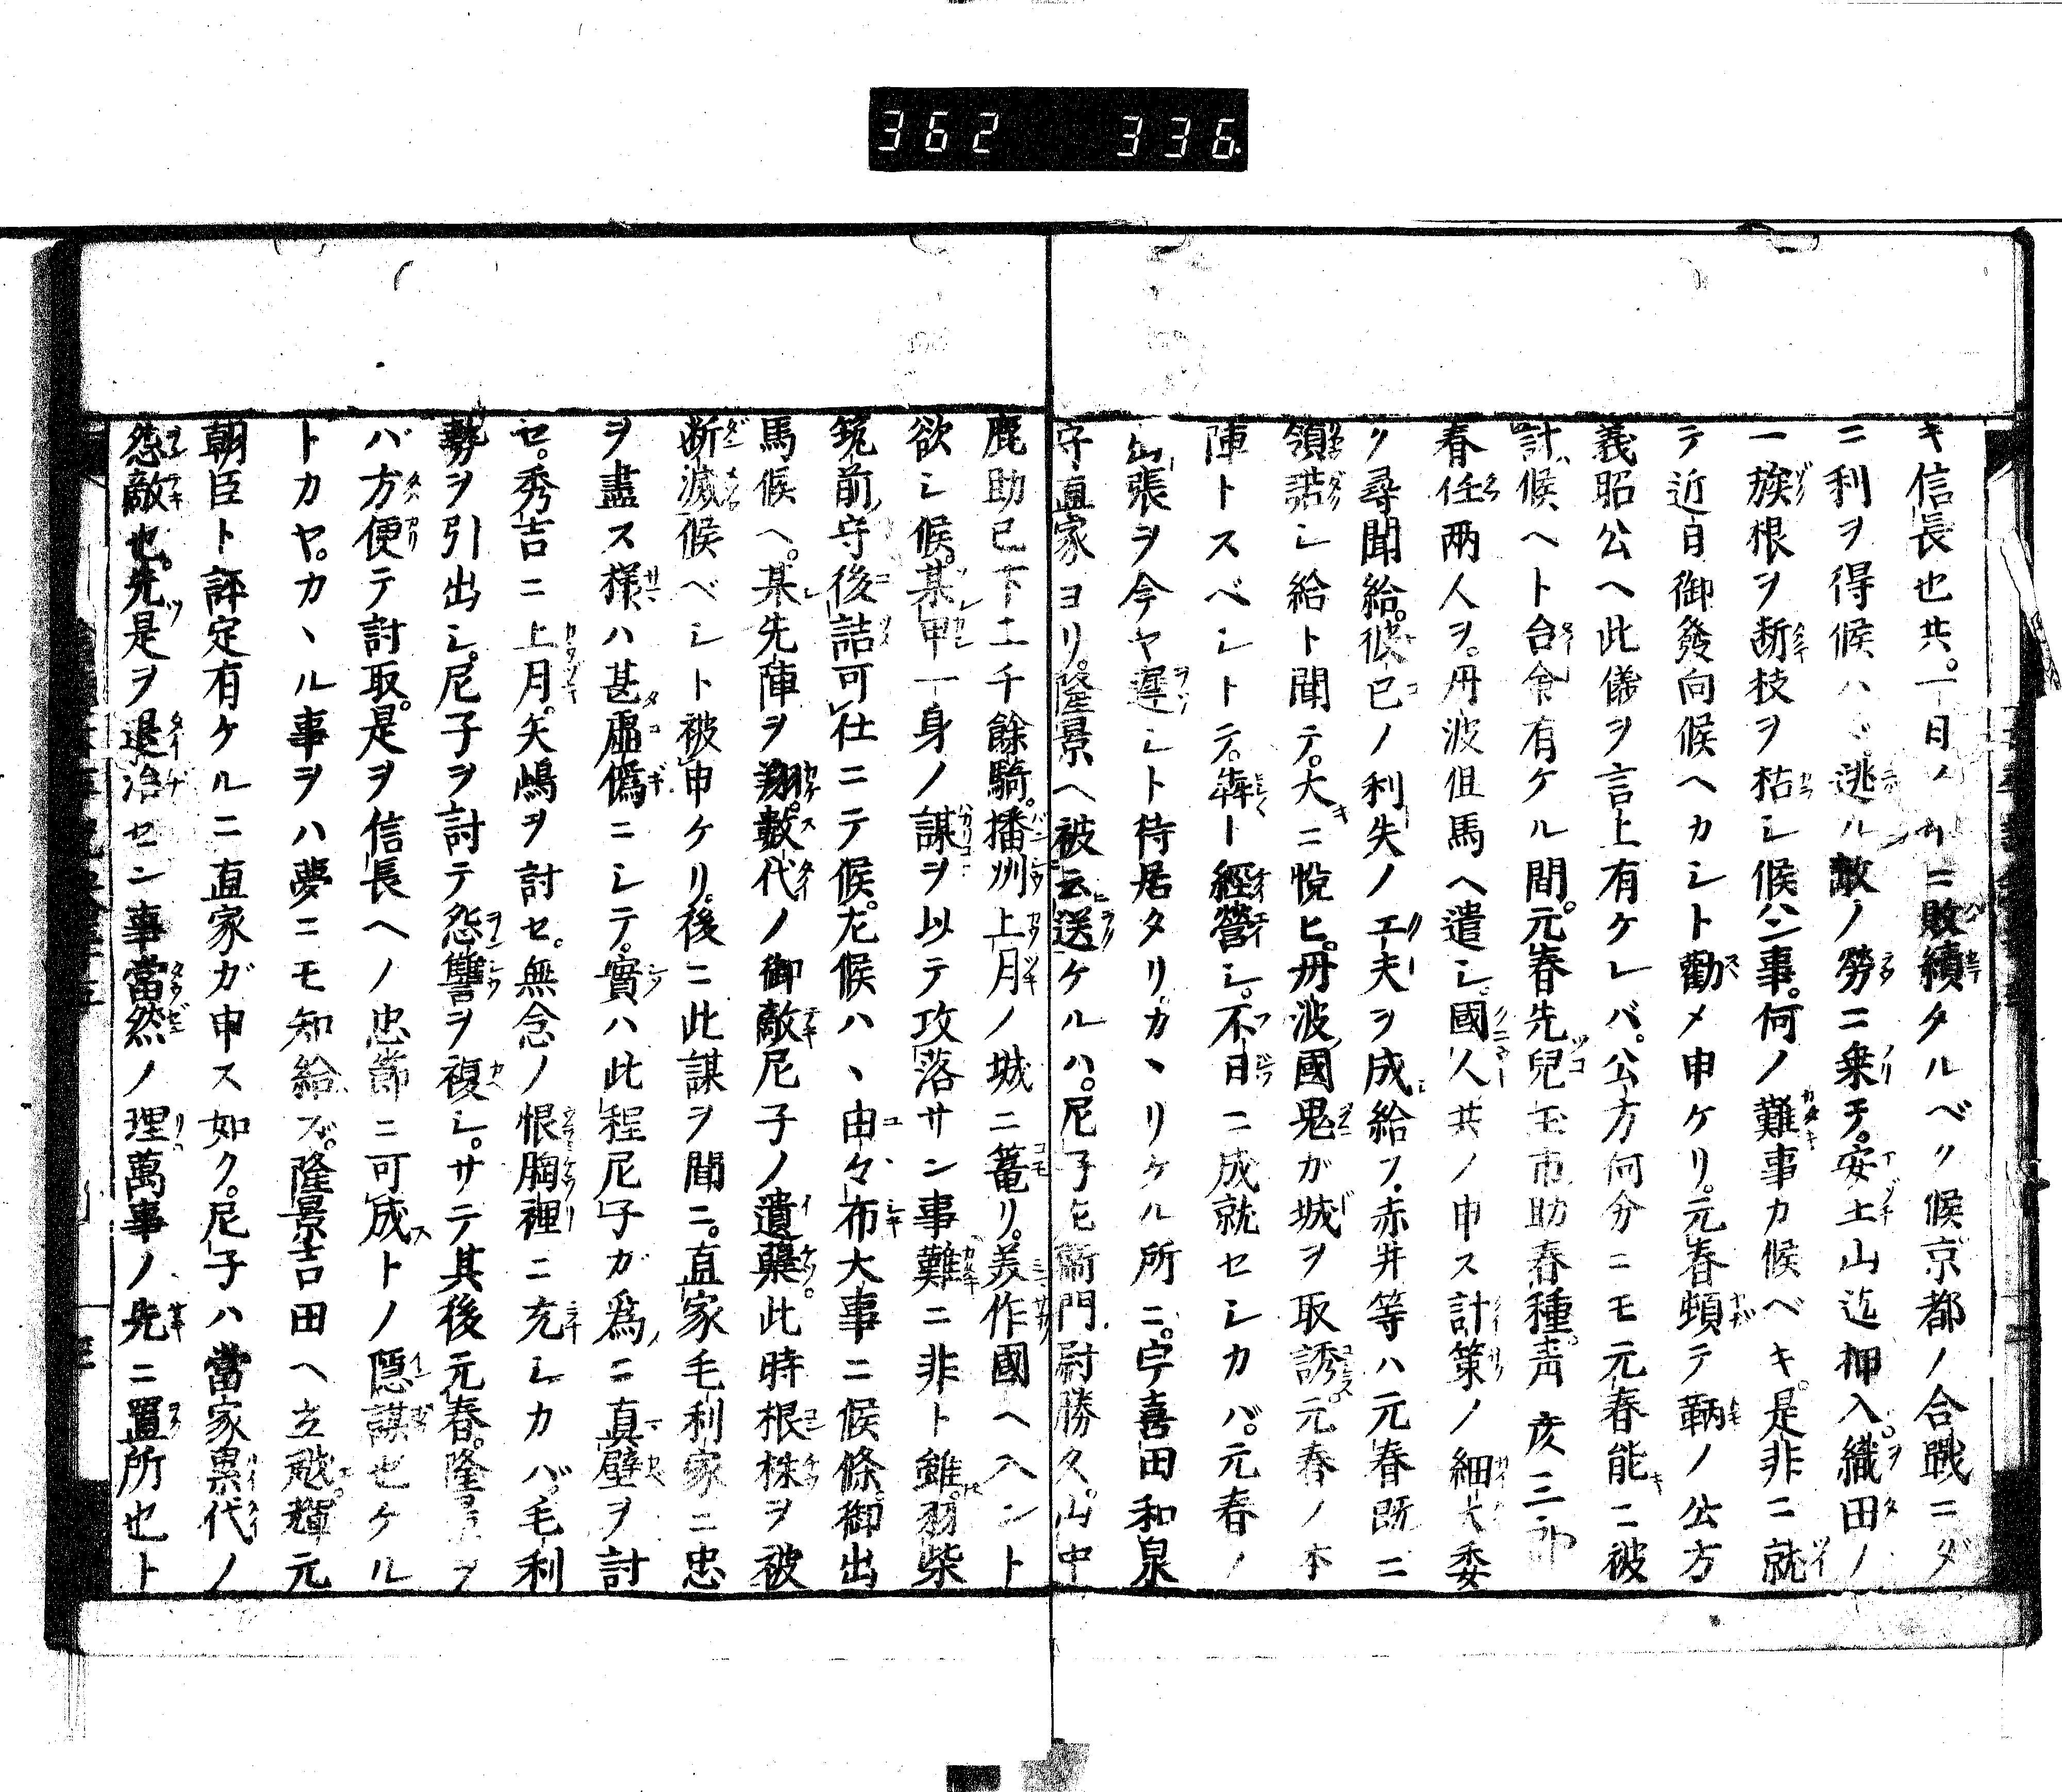 362 336
キ信長也共。一日ノ中ニ敗績タルベク候京都ノ合戰ニダ
ニ利ヲ得候ハヾ逃ル敵ノ勞ニ乗テ。安土山迄押入。織田ノ
一族根ヲ断枝ヲ枯シ候ハン事。何ノ難事カ候ベキ。是非ニ就
テ近日御發向候ヘカシト勸メ申ケリ。元春頓テ鞆ノ公方
義昭公ヘ此儀ヲ言上有ケレバ。公方何分ニモ元春能ニ被
計候ヘト台令有ケル間。元春先兒玉市助春種。靑
春任兩人ヲ。丹波但馬ヘ遣シ。國人共ノ申ス計策ノ細大委
ク尋聞給。彼已ノ利失ノ工夫ヲ成給フ。赤井等ハ元春既ニ
領諾シ給ト聞テ。大ニ悅ヒ。丹波國鬼ガ城ヲ取誘。元春ノ本
陣トスベシトテ。犇ト經營シ。不日ニ成就セシカバ。元春ノ
出張ヲ今ヤ遲シト待居タリ。カヽリケル所ニ。宇喜田和泉
守直家ヨリ。隆景ヘ被云送ケルハ。尼子　　門尉勝久。山中
鹿助已下二千餘騎。播州上月ノ城ニ篭リ。美作國ヘ入ント
欲シ候。某甲一身ノ謀ヲ以テ攻落サン事難ニ非ト雖。羽柴
筑前守後詰可仕ニテ候。尤候ハヽ由々布大事ニ候條。御出
馬候ヘ。某先陣ヲ翔。數代ノ御敵尼子ノ遺蘖。此時根株ヲ被
断滅候ベシト被申ケリ。後ニ此謀ヲ聞ニ。直家毛利家ニ忠
ヲ盡ス樣ハ甚虛僞ニシテ。實ハ此程尼子ガ爲ニ真壁ヲ討
セ。秀吉ニ上月。矢嶋ヲ討セ。無念ノ恨胸裡ニ充シカバ。毛利
勢ヲ引出シ。尼子ヲ討テ怨讐ヲ複シ。サテ其後元春。隆景ヲ
バ方便テ討取。是ヲ信長ヘノ忠節ニ可成トノ隱謀也ケル
トカヤ。カヽル事ヲハ夢ニモ知給ズ。隆景吉田ヘ立越。輝元
朝臣ト評定有ケルニ直家ガ申ス如ク。尼子ハ當家累代ノ
怨敵也。先是ヲ退治セン事當然ノ理萬事ノ先ニ置所也ト